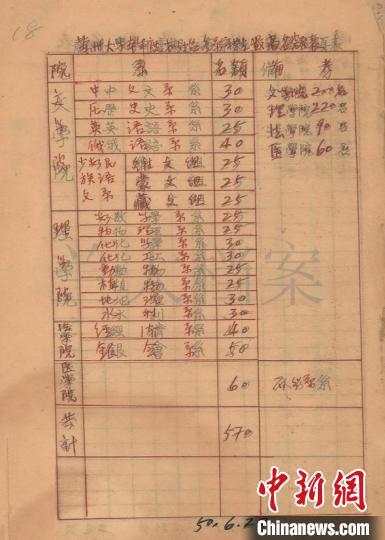 18
蘭州大學
院 系 名額 備考
文學院 中文系 30 文學院200名
歷史系 30 理學院220名
英語系 25 法學院90名
俄語系 40 医學院60名
少數民族語文系 維文組 25
蒙文組 25
藏文組 25
理學院 數學系 25
物理系 25
化學系 30
化工系 30
動物系 25
植物系 25
地理系 30
水利系 30
法學院 經濟系 40
銀會系 50
医學院 60
共計 570
50.6.2
中新网
Chinanews.com